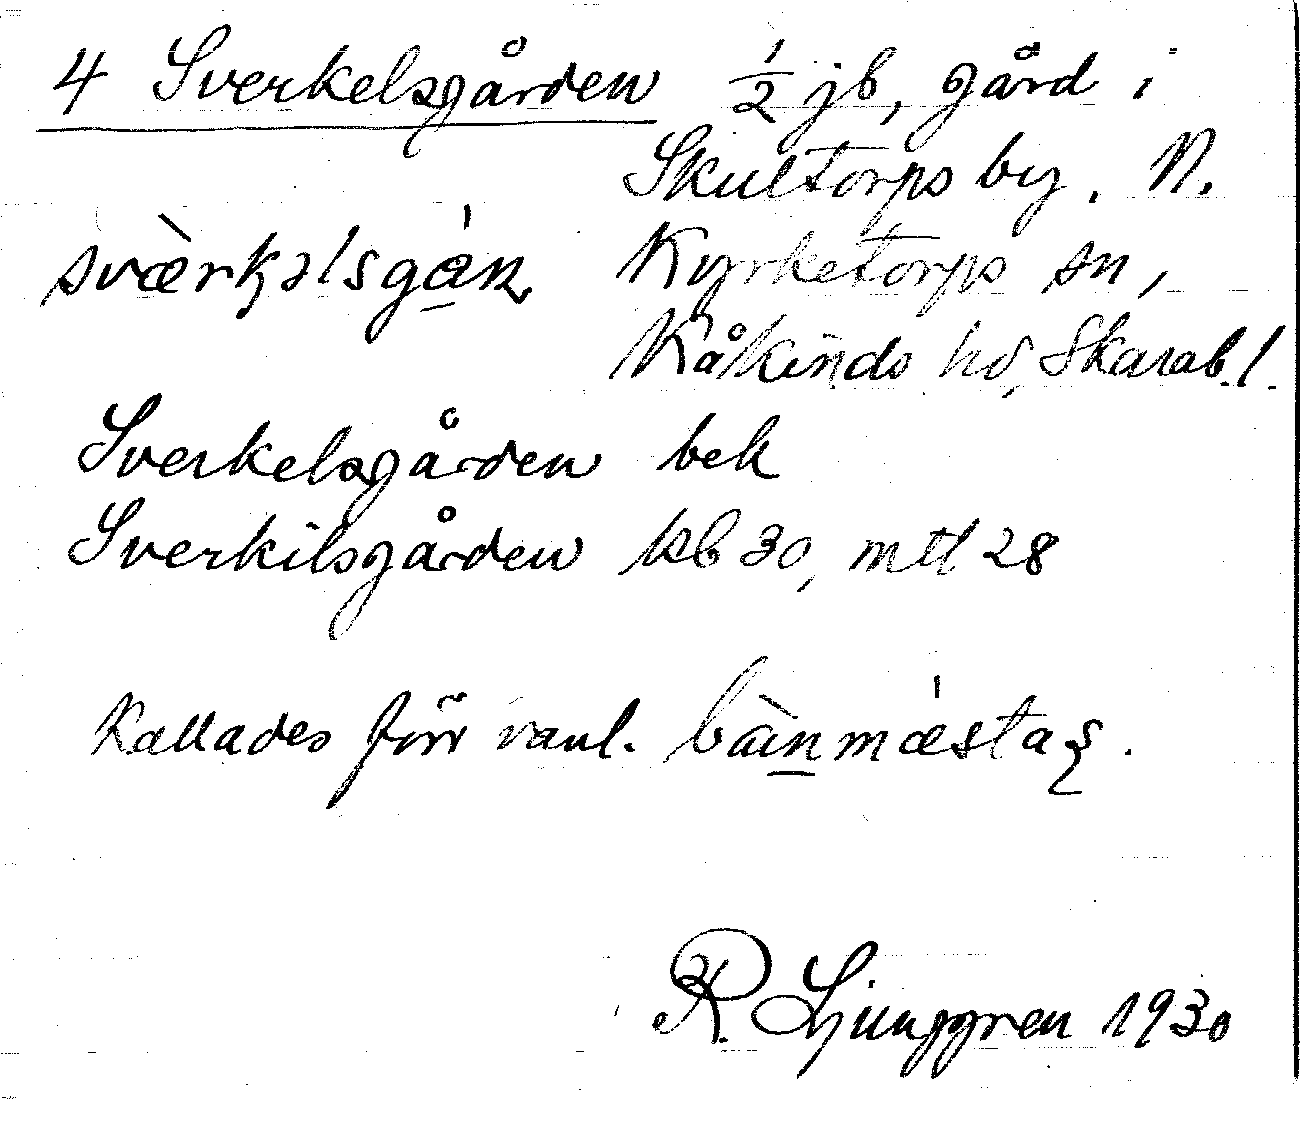 4 Sverkelsgården 1/2 jb, gård i
Skultorps by. N.
Kyrketorps sn,
Kåkinds hd, Skarab.l.
Sverkelsgården bek
Sverkilsgården kb 30, mtl 28
Kallades förr vanl.
R. Ljunggren 1930